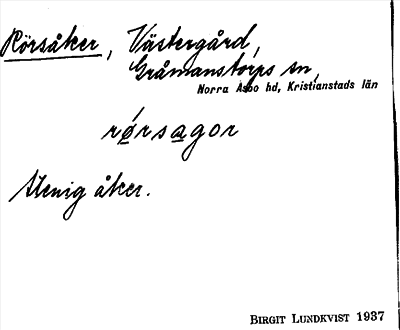 Rörsåker, Västergård,
Gråmanstorps sn,
Norra Åsbo hd, Kristianstads län
rǿrsa̲gor
Stenig åker.
BIRGIT LUNDKVIST 1937